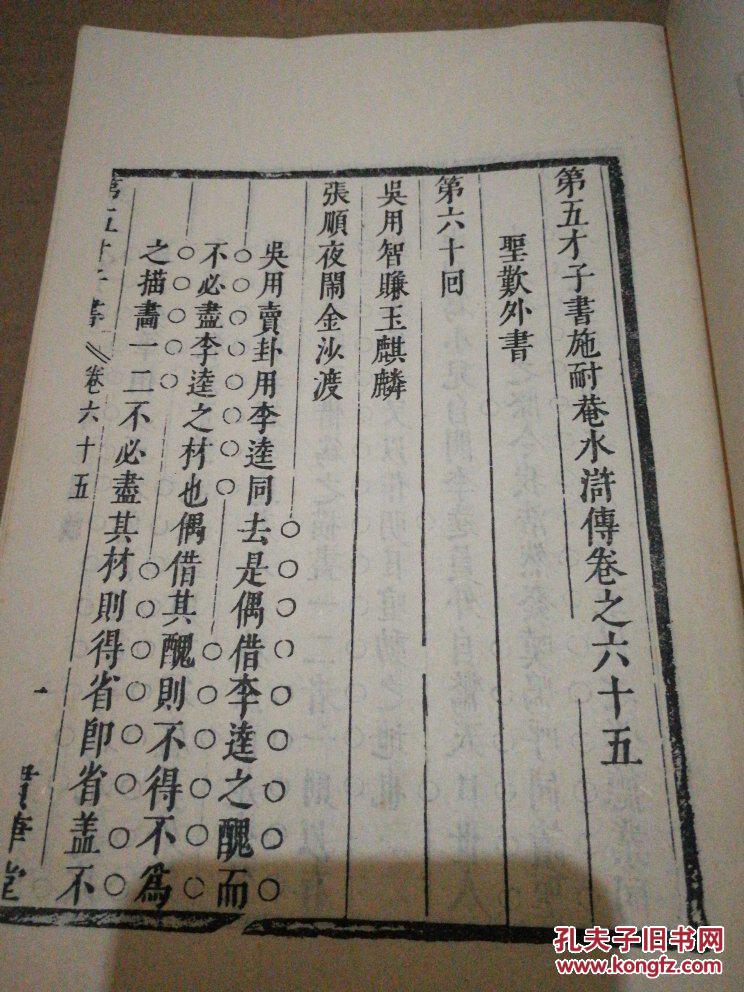 第五才子書施耐菴水滸傳卷之六十五
聖歎外書
第六十回
吳用智賺玉麒麟
張順夜閙金沙渡
吳用賣卦用李逵同去是偶借李逵之醜而
不必盡李逵之材也偶借其醜則不得不爲
之描畵一二不必盡其材則得省卽省盖不
第五才子書
卷六十五
一
貫華堂
孔夫子旧书网
www.kongfz.com